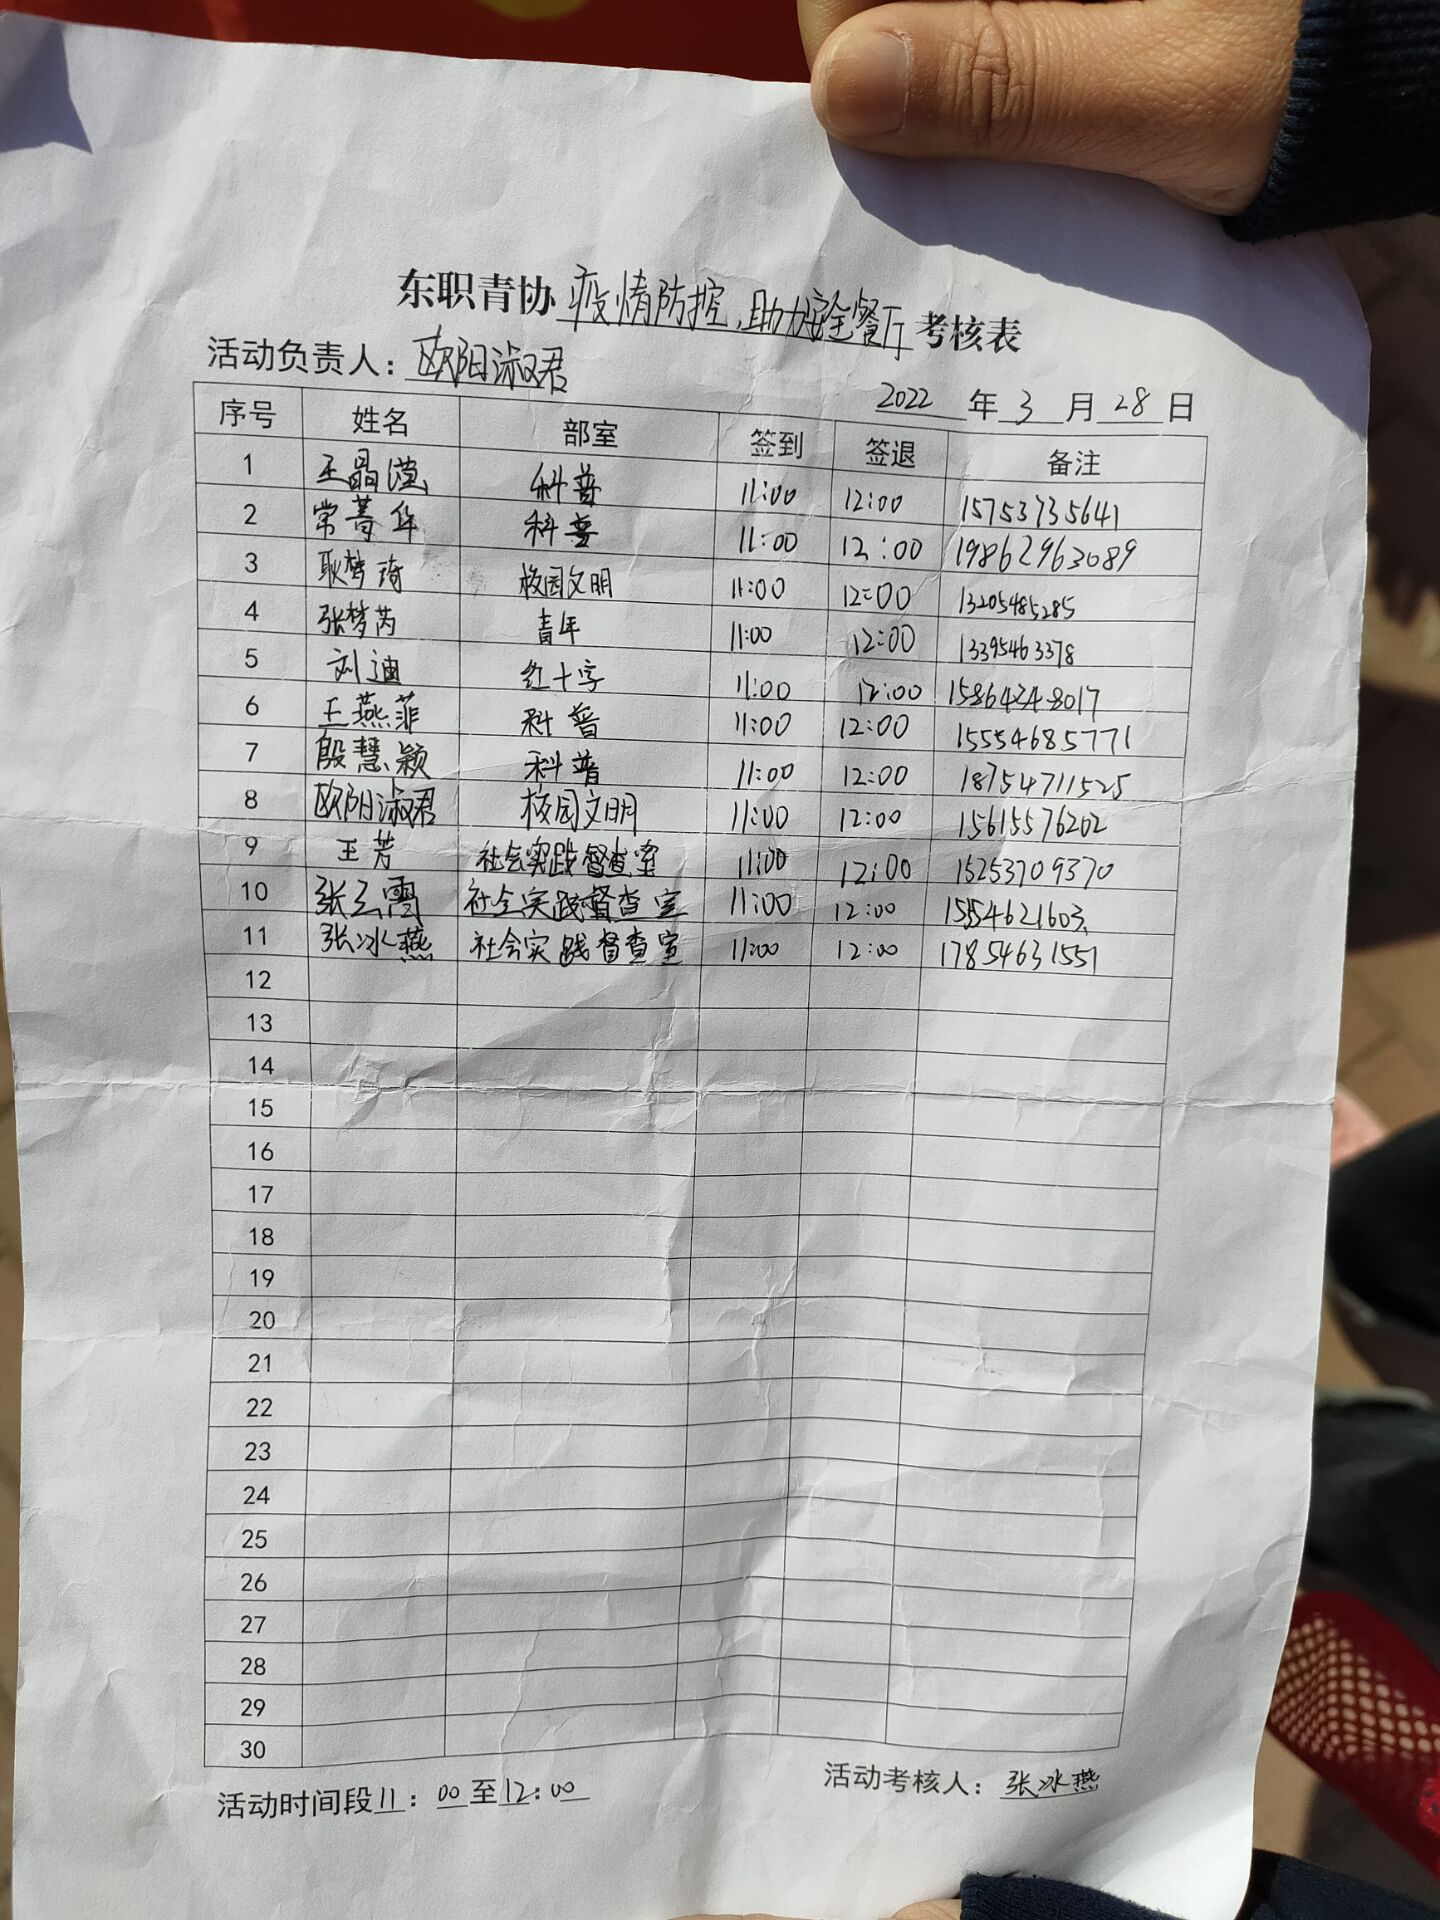 东职青协疫情防控、助力安全餐厅考核表
活动负责人：欧阳淑君
2022年3月28日
序号 姓名 部室 签到 签退 备注
1 王晶滢 科普 11:00 12:00 15753735641
2 常菁华 科普 11:00 12:00 19862963089
3 耿梦琦 校园文明 11:00 12:00 13205485285
4 张梦芮 青年 11:00 12:00 13395463378
5 刘迪 红十字 11:00 12:00 15864248017
6 王燕菲 科普 11:00 12:00 15554685771
7 殷慧颖 科普 11:00 12:00 18754711525
8 欧阳淑君 校园文明 11:00 12:00 15615576202
9 王芳 社会实践督查室 11:00 12:00 15253709370
10 张云霄 社会实践督查室 11:00 12:00 15554621603
11 张冰燕 社会实践督查室 11:00 12:00 17854631551
12
13
14
15
16
17
18
19
20
21
22
23
24
25
26
27
28
29
30
活动时间段11：00至12：00
活动考核人：张冰燕